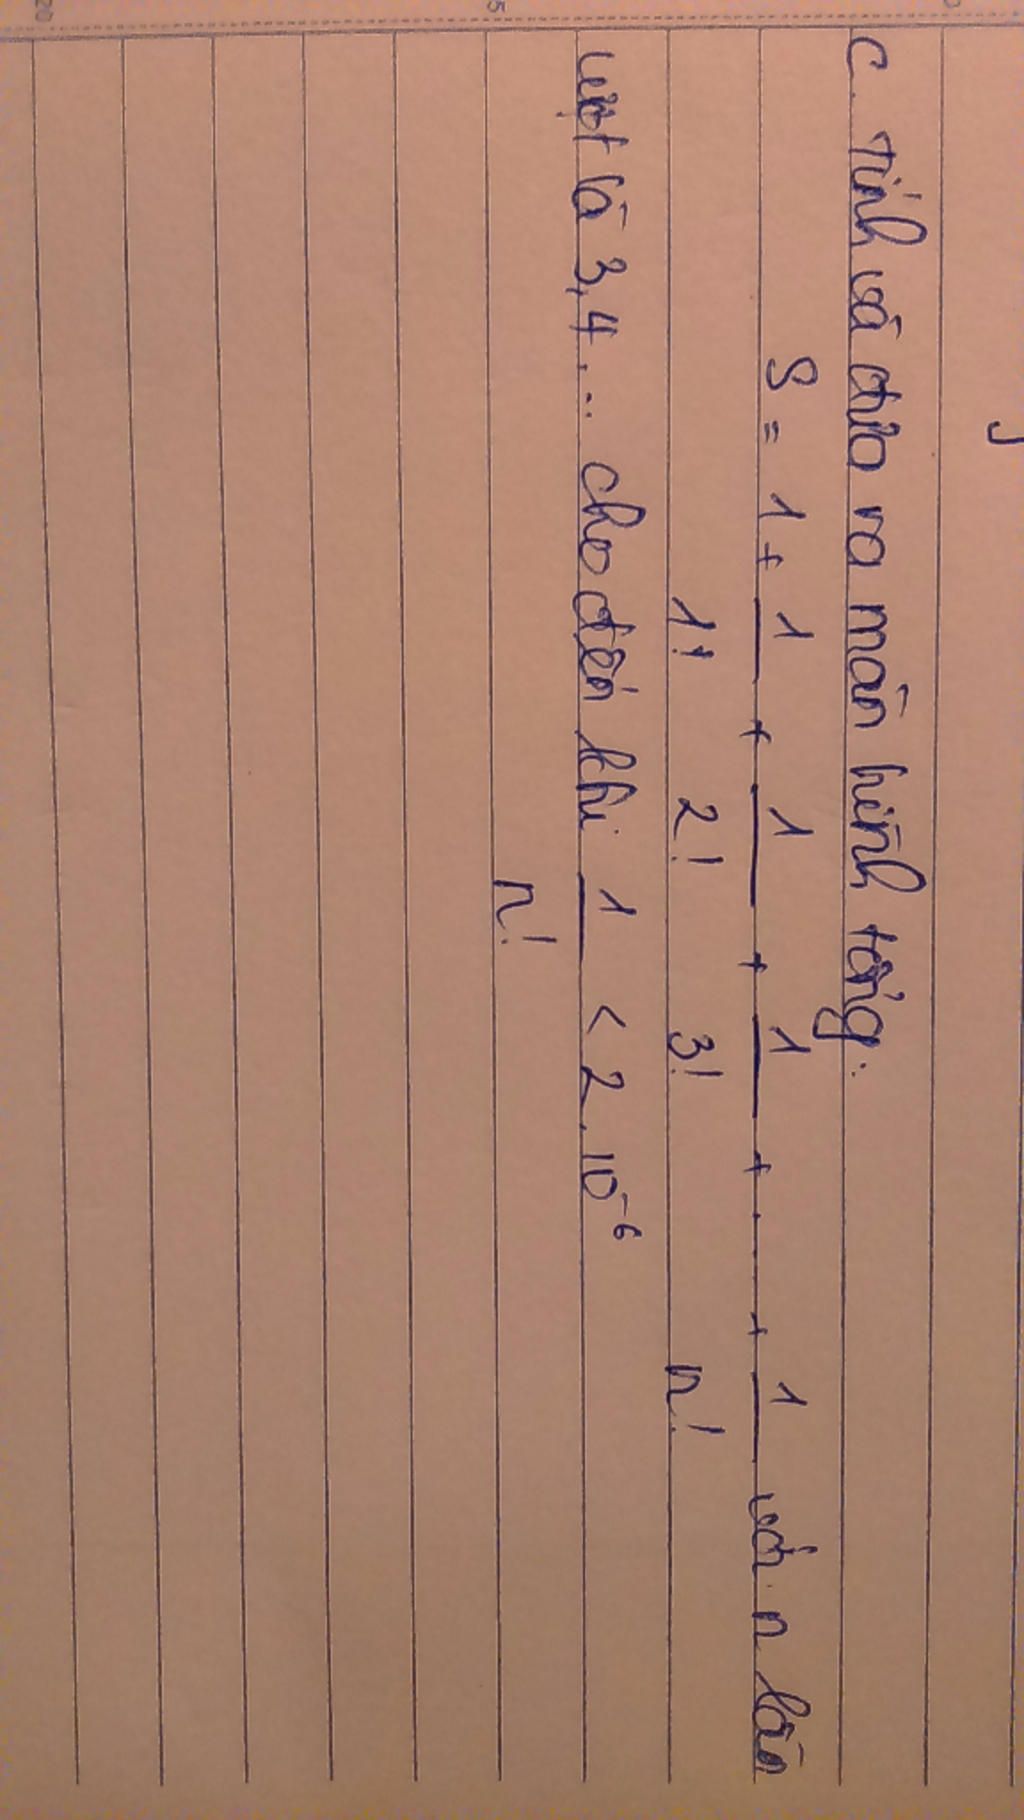 C. Tính và đưa ra màn hình tổng:
S = 1 + 1/1! + 1/2! + 1/3! + ... + 1/n! với n lần
lượt là 3, 4, ... cho đến khi 1/n! < 2.10⁻⁶